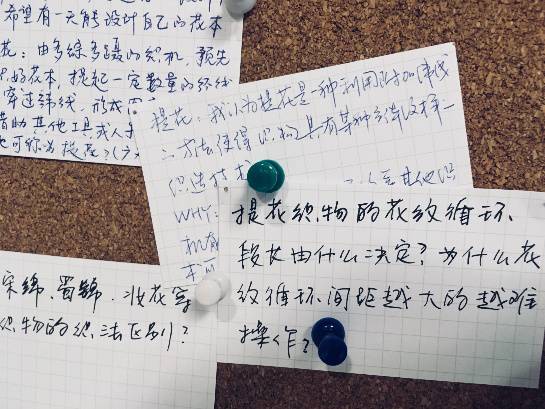 希望有一天能设计自己的花本
花：由多综多蹑的织机，预先
的花本，提起一定数量的经线
穿过纬线，形成
借助其他工具或人
也可称为提花？
提花：我认为提花是一种利用附加
方法使得织物具有某种
织造技术
其他织
WHY：
机
提花织物的花纹循环
段长由什么决定？为什么花
纹循环间距越大的越难
操作？
宋锦、蜀锦、妆花等
织物的织法区别？